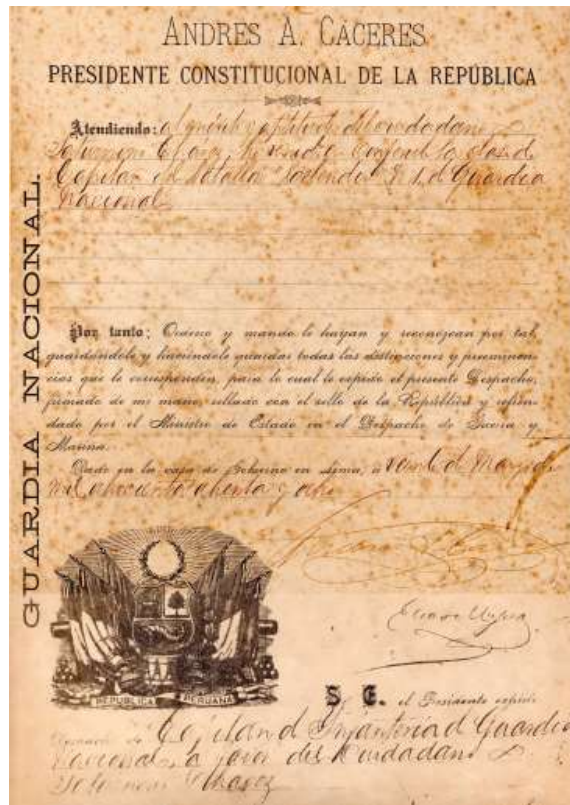 ANDRES A. CÁCERES
PRESIDENTE CONSTITUCIONAL DE LA REPÚBLICA
GUARDIA NACIONAL.
Atendiendo: al mérito y aptitudes del ciudadano
Chavez he venido conferirle la clase de
Capitan del Batallon N. 1. de Guardia
Nacional
Por tanto: Ordeno y mando le hayan y reconozcan por tal,
guardándole y haciéndole guardar todas las distinciones y preeminen-
cias que le corresponden, para lo cual le expido el presente Despacho,
firmado de mi mano, sellado con el sello de la República y refren-
dado por el Ministro de Estado en el Despacho de Guerra y
Marina.
Dado en la casa de Gobierno en Lima, á veinte de Marzo de
mil ochocientos ochenta y ocho
REPUBLICA PERUANA
S. E. el Presidente expide
Capitan de Infanteria de Guardia
Nacional a favor del Ciudadano
Chavez